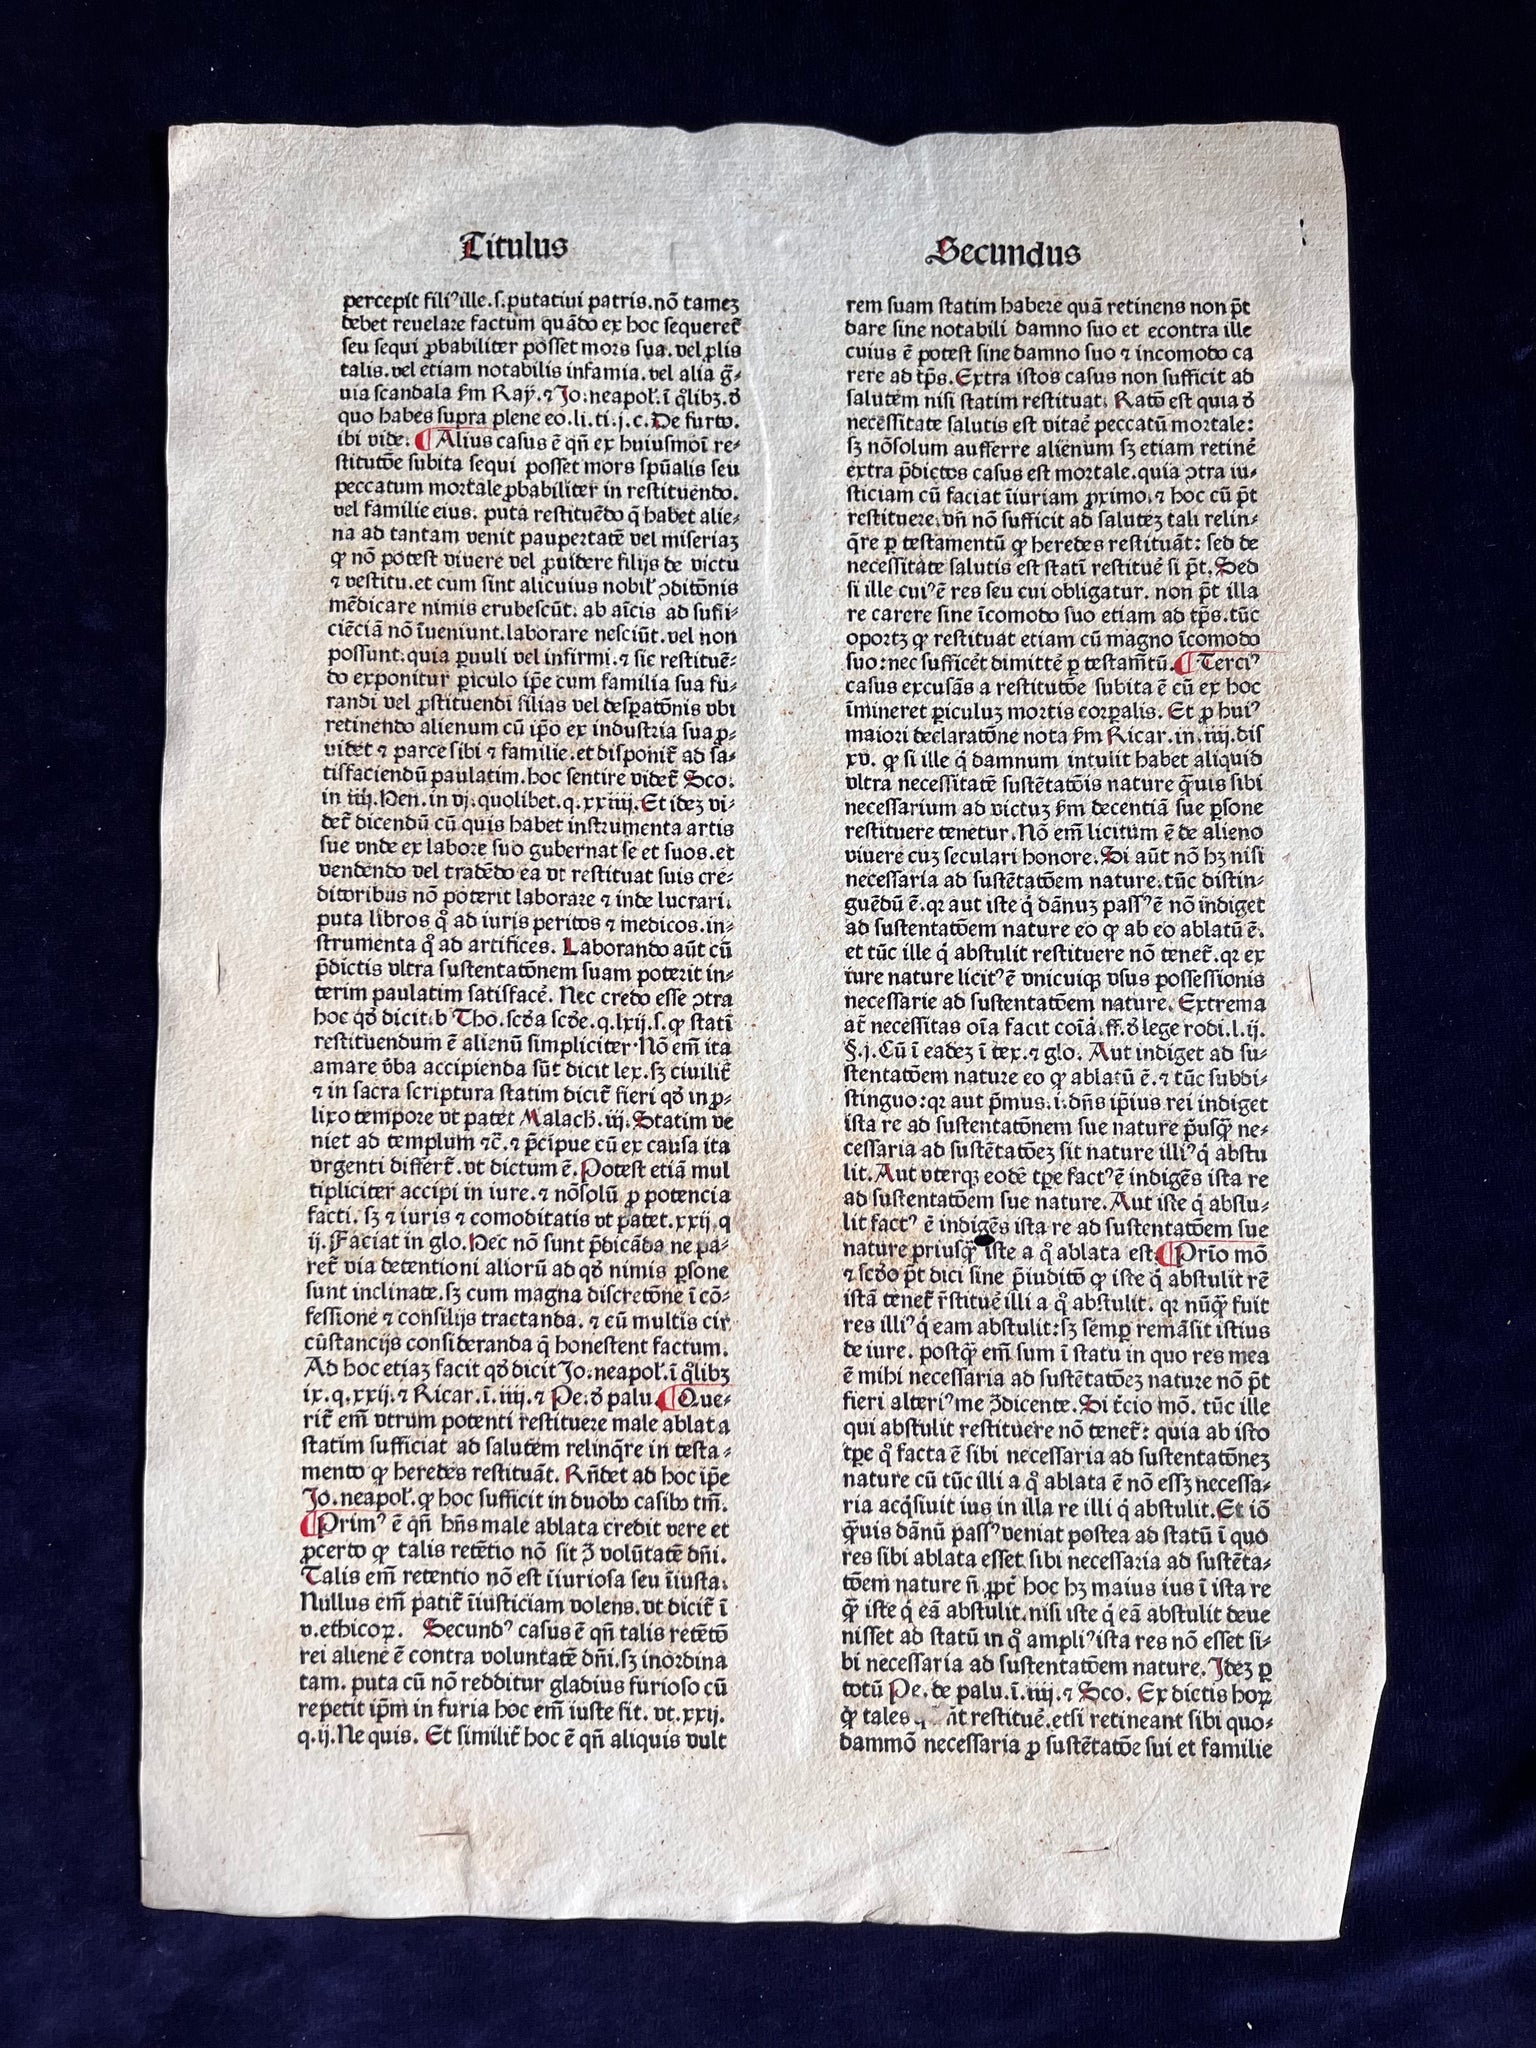 Titulus
percepit filiꝰ ille.s.putatiui patris.nõ tameꝫ
debet reuelare factum quãdo ex hoc sequeret᷑
seu sequi ꝓbabiliter posset mors sua.vel ꝓlis
talis.vel etiam notabilis infamia.vel alia g̃-
uia scandala ẜm Raẏ.⁊ Jo.neapol̕.ĩ q̊libꝫ.ꝺ̊
quo habes supra plene eo.li.ti.j.c.De furto.
ibi vide. ¶ Alius casus ẽ qñ ex huiusmoĩ re-
stitutõe subita sequi posset mors spũalis seu
peccatum mortale ꝓbabiliter in restituendo.
vel familie eius. puta restituẽdo q̃ habet alie-
na ad tantam venit paupertatẽ vel miseriaꝫ
ꝙ nõ potest viuere vel ꝓuidere filijs de victu
⁊ vestitu.et cum sint alicuius nobil̕ ꝯditõnis
mẽdicare nimis erubescũt. ab aĩcis ad suffi-
ciẽciã nõ ĩueniunt.laborare nesciũt.vel non
possunt.quia ꝑuuli vel infirmi.⁊ sic restituẽ-
do exponitur ꝑiculo ip̃e cum familia sua fu-
randi vel ꝓstituendi filias vel desꝑatõnis vbi
retinendo alienum cũ ip̃o ex industria sua ꝓ-
uidet ⁊ parce sibi ⁊ familie.et disponit᷑ ad sa-
tisfaciendũ paulatim.hoc sentire videt᷑ Sco.
in iiij.Hen.in vj.quolibet.q.xxiiij.Et ideꝫ vi-
det᷑ dicendũ cũ quis habet instrumenta artis
sue vnde ex labore suo gubernat se et suos.et
vendendo vel tradẽdo ea vt restituat suis cre-
ditoribus nõ poterit laborare ⁊ inde lucrari.
puta libros q̊ ad iuris peritos ⁊ medicos.in-
strumenta q̊ ad artifices. Laborando aũt cũ
p̃dictis vltra sustentatõnem suam poterit in-
terim paulatim satisfacẽ. Nec credo esse ꝯtra
hoc qꝺ̊ dicit.b Tho.scꝺ̊a scꝺ̊e.q.lxij.s.ꝙ statĩ
restituendum ẽ alienũ simpliciter.Nõ em̃ ita
amare v̑ba accipienda sũt dicit lex.sꝫ ciuilit᷑
⁊ in sacra scriptura statim dicit᷑ fieri qꝺ̊ in ꝓ-
lixo tempore vt patet Malach.iij.Statim ve
niet ad templum ⁊c̃.⁊ p̃cipue cũ ex causa ita
vrgenti differt᷑.vt dictum ẽ.Potest etiã mul
tipliciter accipi in iure.⁊ nõsolũ ꝓ potencia
facti. sꝫ ⁊ iuris ⁊ comoditatis vt patet.xxij.q
ij.Faciat in glo.Hec nõ sunt p̃dicãda ne pa-
ret᷑ via detentioni aliorũ ad qꝺ̊ nimis ꝑsone
sunt inclinate.sꝫ cum magna discretõne ĩ cõ-
fessione ⁊ consilijs tractanda. ⁊ cũ multis cir
cũstancijs consideranda q̃ honestent factum.
Ad hoc etiaꝫ facit qꝺ̊ dicit Jo.neapol̕.ĩ q̊libꝫ
ix.q.xxij.⁊ Ricar.ĩ.iiij.⁊ Pe.ꝺ̊ palu.¶ Que-
rit᷑ em̃ vtrum potenti restituere male ablata
statim sufficiat ad salutem relinq̃re in testa-
mento ꝙ heredes restituãt. Rñdet ad hoc ip̃e
Jo.neapol̕.ꝙ hoc sufficit in duobꝰ casibꝰ tm̃.
¶ Primꝰ ẽ qñ hñs male ablata credit vere et
ꝓcerto ꝙ talis retẽtio nõ sit ꝯ̃ volũtatẽ dñi.
Talis em̃ retentio nõ est ĩiuriosa seu ĩiusta.
Nullus em̃ patit᷑ ĩiusticiam volens.vt dicit᷑ ĩ
v.ethicoꝝ. Secundꝰ casus ẽ qñ talis retẽtõ
rei aliene ẽ contra voluntatẽ dñi.sꝫ inordina
tam. puta cũ nõ redditur gladius furioso cũ
repetit ip̃m in furia hoc em̃ iuste fit. vt.xxij.
q.ij.Ne quis. Et similit᷑ hoc ẽ qñ aliquis vult
Secundus
rem suam statim habere quã retinens non p̃t
dare sine notabili damno suo et econtra ille
cuius ẽ potest sine damno suo ⁊ incomodo ca
rere ad tp̃s.Extra istos casus non sufficit ad
salutem nisi statim restituat. Ratõ est quia ꝺ̊
necessitate salutis est vitaẽ peccatũ mortale:
sꝫ nõsolum aufferre alienum sꝫ etiam retinẽ
extra p̃dictos casus est mortale.quia ꝯtra iu-
sticiam cũ faciat ĩiuriam ꝓximo.⁊ hoc cũ p̃t
restituere.vñ nõ sufficit ad saluteꝫ tali relin-
q̃re ꝑ testamentũ ꝙ heredes restituãt: sed de
necessitate salutis est statĩ restituẽ si p̃t.Sed
si ille cuiꝰ ẽ res seu cui obligatur. non p̃t illa
re carere sine ĩcomodo suo etiam ad tp̃s.tũc
oportꝫ ꝙ restituat etiam cũ magno ĩcomodo
suo:nec sufficẽt dimittẽ ꝑ testam̃tũ.¶ Terciꝰ
casus excusãs a restitutõe subita ẽ cũ ex hoc
ĩmineret ꝑiculuꝫ mortis corꝑalis. Et ꝓ huiꝰ
maiori declaratõne nota ẜm Ricar.in.iiij.dis
xv. ꝙ si ille q̇ damnum intulit habet aliquid
vltra necessitatẽ sustẽtatõis nature q̃uis sibi
necessarium ad victuꝫ ẜm decentiã sue ꝑsone
restituere tenetur.Nõ em̃ licitum ẽ de alieno
viuere cuꝫ seculari honore.Si aũt nõ hꝫ nisi
necessaria ad sustẽtatõem nature.tũc distin-
guẽdũ ẽ.qꝛ aut iste q̇ dãnuꝫ passꝰ ẽ nõ indiget
ad sustentatõem nature eo ꝙ ab eo ablatũ ẽ.
et tũc ille q̇ abstulit restituere nõ tenet᷑.qꝛ ex
iure nature licitꝰ ẽ vnicuiqꝫ vsus possessionis
necessarie ad sustentatõem nature. Extrema
at᷑ necessitas oĩa facit coĩa.ff.ꝺ̊ lege rodi.l.ij.
§.j.Cũ ĩ eadeꝫ ĩ tex.⁊ glo. Aut indiget ad su-
stentatõem nature eo ꝙ ablatũ ẽ.⁊ tũc subdi-
stinguo:qꝛ aut p̃mus.i.dñs ip̃ius rei indiget
ista re ad sustentatõnem sue nature p̃usq̃ ne-
cessaria ad sustẽtatõeꝫ sit nature illiꝰ q̇ abstu
lit.Aut vterqꝫ eodẽ tꝑe factꝰ ẽ indigẽs ista re
ad sustentatõem sue nature.Aut iste q̇ abstu-
lit factꝰ ẽ indigẽs ista re ad sustentatõem sue
nature priusq̃ iste a q̊ ablata est.¶ Prĩo mõ
⁊ scꝺ̊o p̃t dici sine p̃iuditõ ꝙ iste q̇ abstulit rẽ
istã tenet᷑ r̃stituẽ illi a q̊ abstulit. qꝛ nũq̃ fuit
res illiꝰ q̇ eam abstulit:sꝫ semꝑ remãsit istius
de iure. postq̃ em̃ sum ĩ statu in quo res mea
ẽ mihi necessaria ad sustẽtatõeꝫ nature nõ p̃t
fieri alteriꝰ me ꝯ̃dicente.Si t̃cio mõ. tũc ille
qui abstulit restituere nõ tenet᷑: quia ab isto
tꝑe q̊ facta ẽ sibi necessaria ad sustentatõneꝫ
nature cũ tũc illi a q̊ ablata ẽ nõ essꝫ necessa-
ria acq̇siuit ius in illa re illi q̇ abstulit.Et iõ
q̃uis dãnũ passꝰ veniat postea ad statũ ĩ quo
res sibi ablata esset sibi necessaria ad sustẽta-
tõem nature ñ ꝓpt᷑ hoc hꝫ maius ius ĩ ista re
q̃ iste q̇ eã abstulit.nisi iste q̇ eã abstulit deue
nisset ad statũ in q̊ ampliꝰ ista res nõ esset si-
bi necessaria ad sustentatõem nature.Jdeꝫ ꝑ
totũ Pe.de palu.ĩ.iiij.⁊ Sco. Ex dictis hoꝝ
ꝙ tales restituẽ.etsi retineant sibi quo-
dammõ necessaria ꝓ sustẽtatõe sui et familie